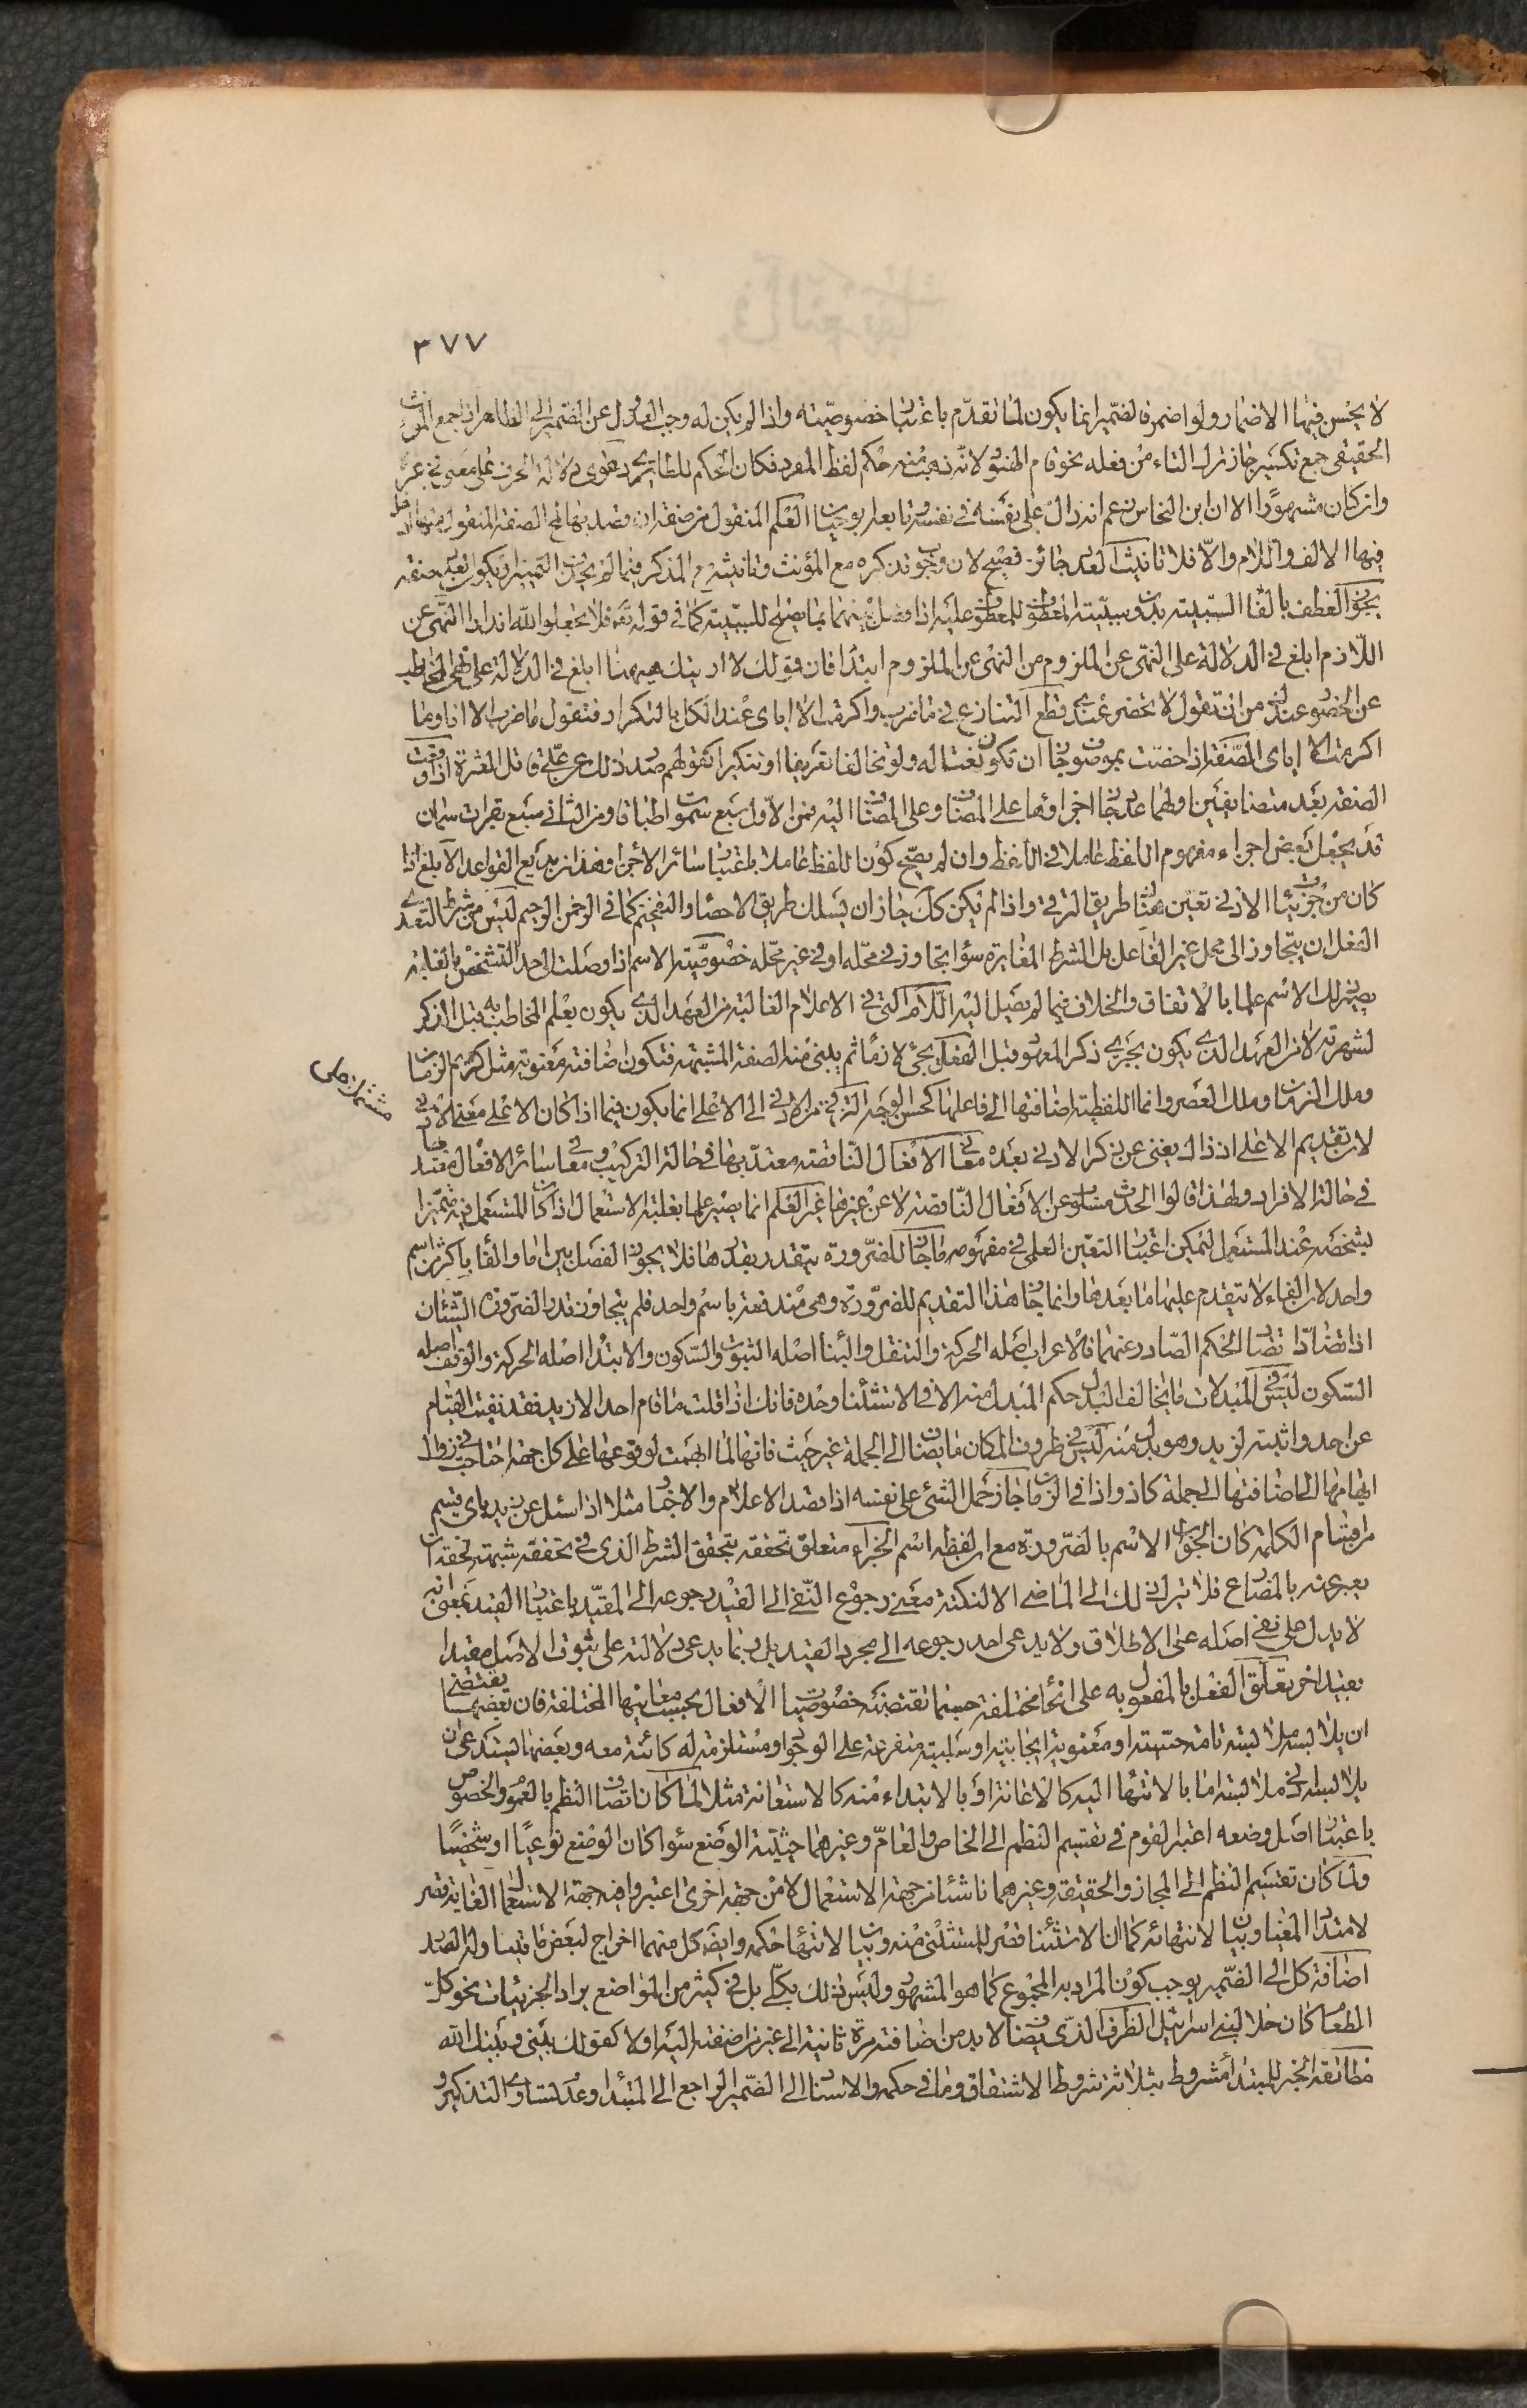 ٣٧٧
لا يحسن فيها الاضمار ولو اضمر فالضمير انما يكون لما تقدم باعتبار خصوصيته واذا لم يكن له وجب العدول عن الضمير الى الظاهر اذا جمع المؤنث
الحقيقي جمع تكسير جاز ترك التاء من فعله نحو قام الهنود لانه ذهب منه حكم لفظ المفرد فكان الحكم للطارئ دعوى دلالة الحرف على معنى في غيره
وان كان مشهورا الا ان ابن النحاس زعم انه دال على نفسه في نفسه تابعا له ابو حيان العلم المنقول من صفة ان قصد به لمح الصفة المنقول منها ادخل
فيها الالف واللام والا فلا تانيث العدد جائز فصيح لان وجوب تذكيره مع المؤنث وتانيثه مع المذكر فيما لم يحذف التمييز او يكون بعد صفة
يجوز العطف بالفاء السببية بدون سببية المعطوف للمعطوف عليه اذا فصل بينهما بما يصلح للسببية كما في قوله تعه فلا تجعلوا لله اندادا النهي عن
اللازم ابلغ في الدلالة على النهي عن الملزوم من النهي عن الملزوم ابتداء فان قولك لا ارينك ههنا ابلغ في الدلالة على نهي المخاطب
عن الحضور عندك من ان تقول لا تحضر عندي قطع التنازع في ما ضرب واكرمت الا اياى عند الكل بالتكرار فتقول ما ضرب الا انا وما
اكرمت الا اياى الصفة اذا خصت بموصوف جاز ان تكون نعتا له ولو تخالفا تعريفا او تنكيرا كقولهم صدر ذلك عن علي قائل المغترة اذا وقعت
الصفة بعد متضايفين اولهما عدد جاز اجراؤها على المضاف وعلى المضاف اليه فمن الاول سبع سموات طباقا ومن الثاني سبع بقرات سمان
قد يجعل بعض اجزاء مفهوم اللفظ عاملا في اللفظ وان لم يصح كون اللفظ عاملا باعتبار سائر الاجزاء وهذا من بديع القواعد الابلغ اذا
كان من جزئيات الادنى تعين هناك طريق الترقي واذا لم يكن كك جاز ان يسلك طريق الاحصاء والتفخيم كما في الرحمن الرحيم ليس من شرط التعدي
الفعل ان يتجاوز الى محل غير الفاعل بل الشرط المغايرة سواء تجاوز في محله او في غير محله خصوصية الاسم اذا وصلت الى حد التشخص بالغلبة
يصير ذلك الاسم علما بالاتفاق والخلاف فيما لم يصل اليه اللام التي في الاعلام الغالبة من العهد الذي يكون بعلم المخاطب به قبل الذكر
لشهرته لا من العهد الذي يكون بجري ذكر المعهود قبل الفعل يجئ لازما ثم يبنى منه الصفة المشبهة فتكون اضافته معنوية مثل كريم الزمان
وملك الزمان وملك العصر وانما اللفظية اضافتها الى فاعلها كحسن الوجه الترقي من الادنى الى الاعلى انما يكون فيما اذا كان الاعلى مشتملا على معنى الادنى
لان تقديم الاعلى اذ ذاك يغني عن ذكر الادنى بعده معاني الافعال الناقصة معتد بها في حالة التركيب ومعاني سائر الافعال معتد بها
في حالة الافراد ولهذا قالوا الحدث مسلوب عن الافعال الناقصة لا عن غيرها غير العلم انما يصير علما بغلبة الاستعمال اذا كان المستعمل فيه متميزا
بشخصه عند المستعمل ليمكن اعتبار التعين العلمي في مفهومه ما جاز للضرورة يتقدر بقدرها فلا يجوز الفصل بين اما والفاء باكثر من اسم
واحد لان الفاء لا يتقدم عليها ما بعدها وانما جاز هذا التقديم للضرورة وهي مندفعة باسم واحد فلم يتجاوز قدر الضرورة الشيئان
اذا تضادا تضاد الحكم الصادر عنهما فالاعراب اصله الحركة والتنقل والبناء اصله الثبوت والسكون والابتداء اصله الحركة والوقف اصله
السكون ليس في المبدلات ما يخالف البدل حكم المبدل منه الا في الاستثناء وحده فانك اذا قلت ما قام احد الا زيد فقد نفيت القيام
عن احد واثبته لزيد وهو بدل منه ليس في ظروف المكان ما يضاف الى الجملة غير حيث فانها لما ابهمت لوقوعها على كل جهة احتاجت في زوال
ابهامها الى اضافتها لجملة كاذ واذا في الزمان جاز حمل الشئ على نفسه اذا قصد الاعلام والاخبار مثلا اذا سئل عن زيد باى قسيم
من اقسام الكلمة كان الجواب الاسم بالضرورة مع ان لفظه اسم الجزاء متعلق تحققه بتحقق الشرط الذي في تحققه شبهة فحقه ان
يعبر عنه بالمضارع فلا يترك ذلك الى الماضي الا لنكتة معنى رجوع النفي الى القيد رجوعه الى المقيد باعتبار القيد بمعنى انه
لا يدل على نفي اصله على الاطلاق ولا يدعى احد رجوعه الى مجرد القيد بل ربما يدعى دلالته على ثبوت الاصل مقيدا
بقيد اخر تعلق الفعل بالمفعول به على انحاء مختلفة حسبما تقتضيه خصوصيات الافعال بحسب معانيها المختلفة فان بعضها يقتضي
ان يلابسه ملابسة تامة حسية او معنوية ايجابية او سلبية متفرعة على الوجود او مستلزمة له كائنة معه وبعضها يستدعى ان
يلابسه ادنى ملابسة اما بالانتهاء اليه كالاعانة او بالابتداء منه كالاستعانة مثلا لما كان اتصاف النظم بالعموم والخصوص
باعتبار اصل وضعه اعتبر القوم في تقسيم النظم الى الخاص والعام وغيرهما حيثية الوضع سواء كان الوضع نوعيا او شخصيا
ولما كان تقسيم النظم الى المجاز والحقيقة وغيرهما ناشئا من جهة الاستعمال لا من جهة اخرى اعتبروا فيه جهة الاستعمال الغاية قصر
لامتداد المغيا وبيان لانتهائه كما ان الاستثناء قصر للمستثنى منه وبيان لانتهاء حكمه وايضا كل منهما اخراج لبعض ما تناوله الصدر
اضافة كل الى الضمير يوجب كون المراد به المجموع كما هو المشهور وليس ذلك بكلي بل في كثير من المواضع يراد الجزئيات نحو كل
الطعام كان حلا لبني اسرائيل الظرف الذي يضاف لا بد من اضافته مرة ثانية الى غير من اضفته اليه اولا كقولك بيني وبينك الله
مطابقة الخبر للمبتدأ مشروط بثلاثة شروط الاشتقاق وما في حكمه والاسناد الى الضمير الراجع الى المبتدأ وعدم تساوي التذكير و